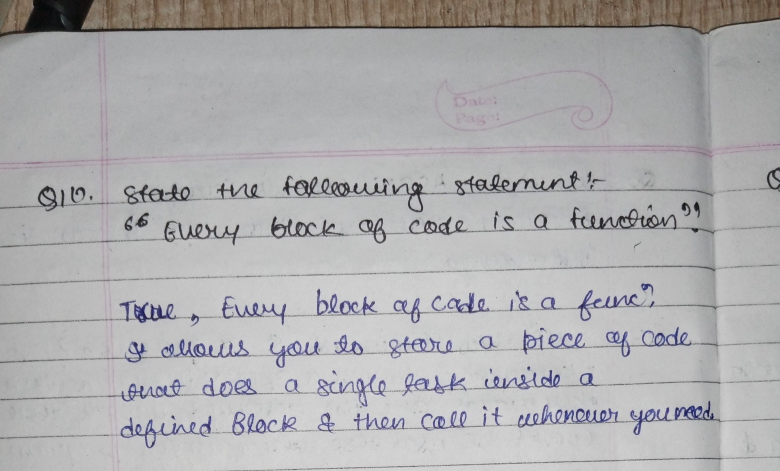 Date:
Page:
Q10. State the following statement:-
"Every block of code is a function"
True, Every block of code is a funcn.
It allows you to store a piece of code
that does a single task inside a
defined Block & then call it whenever you need.